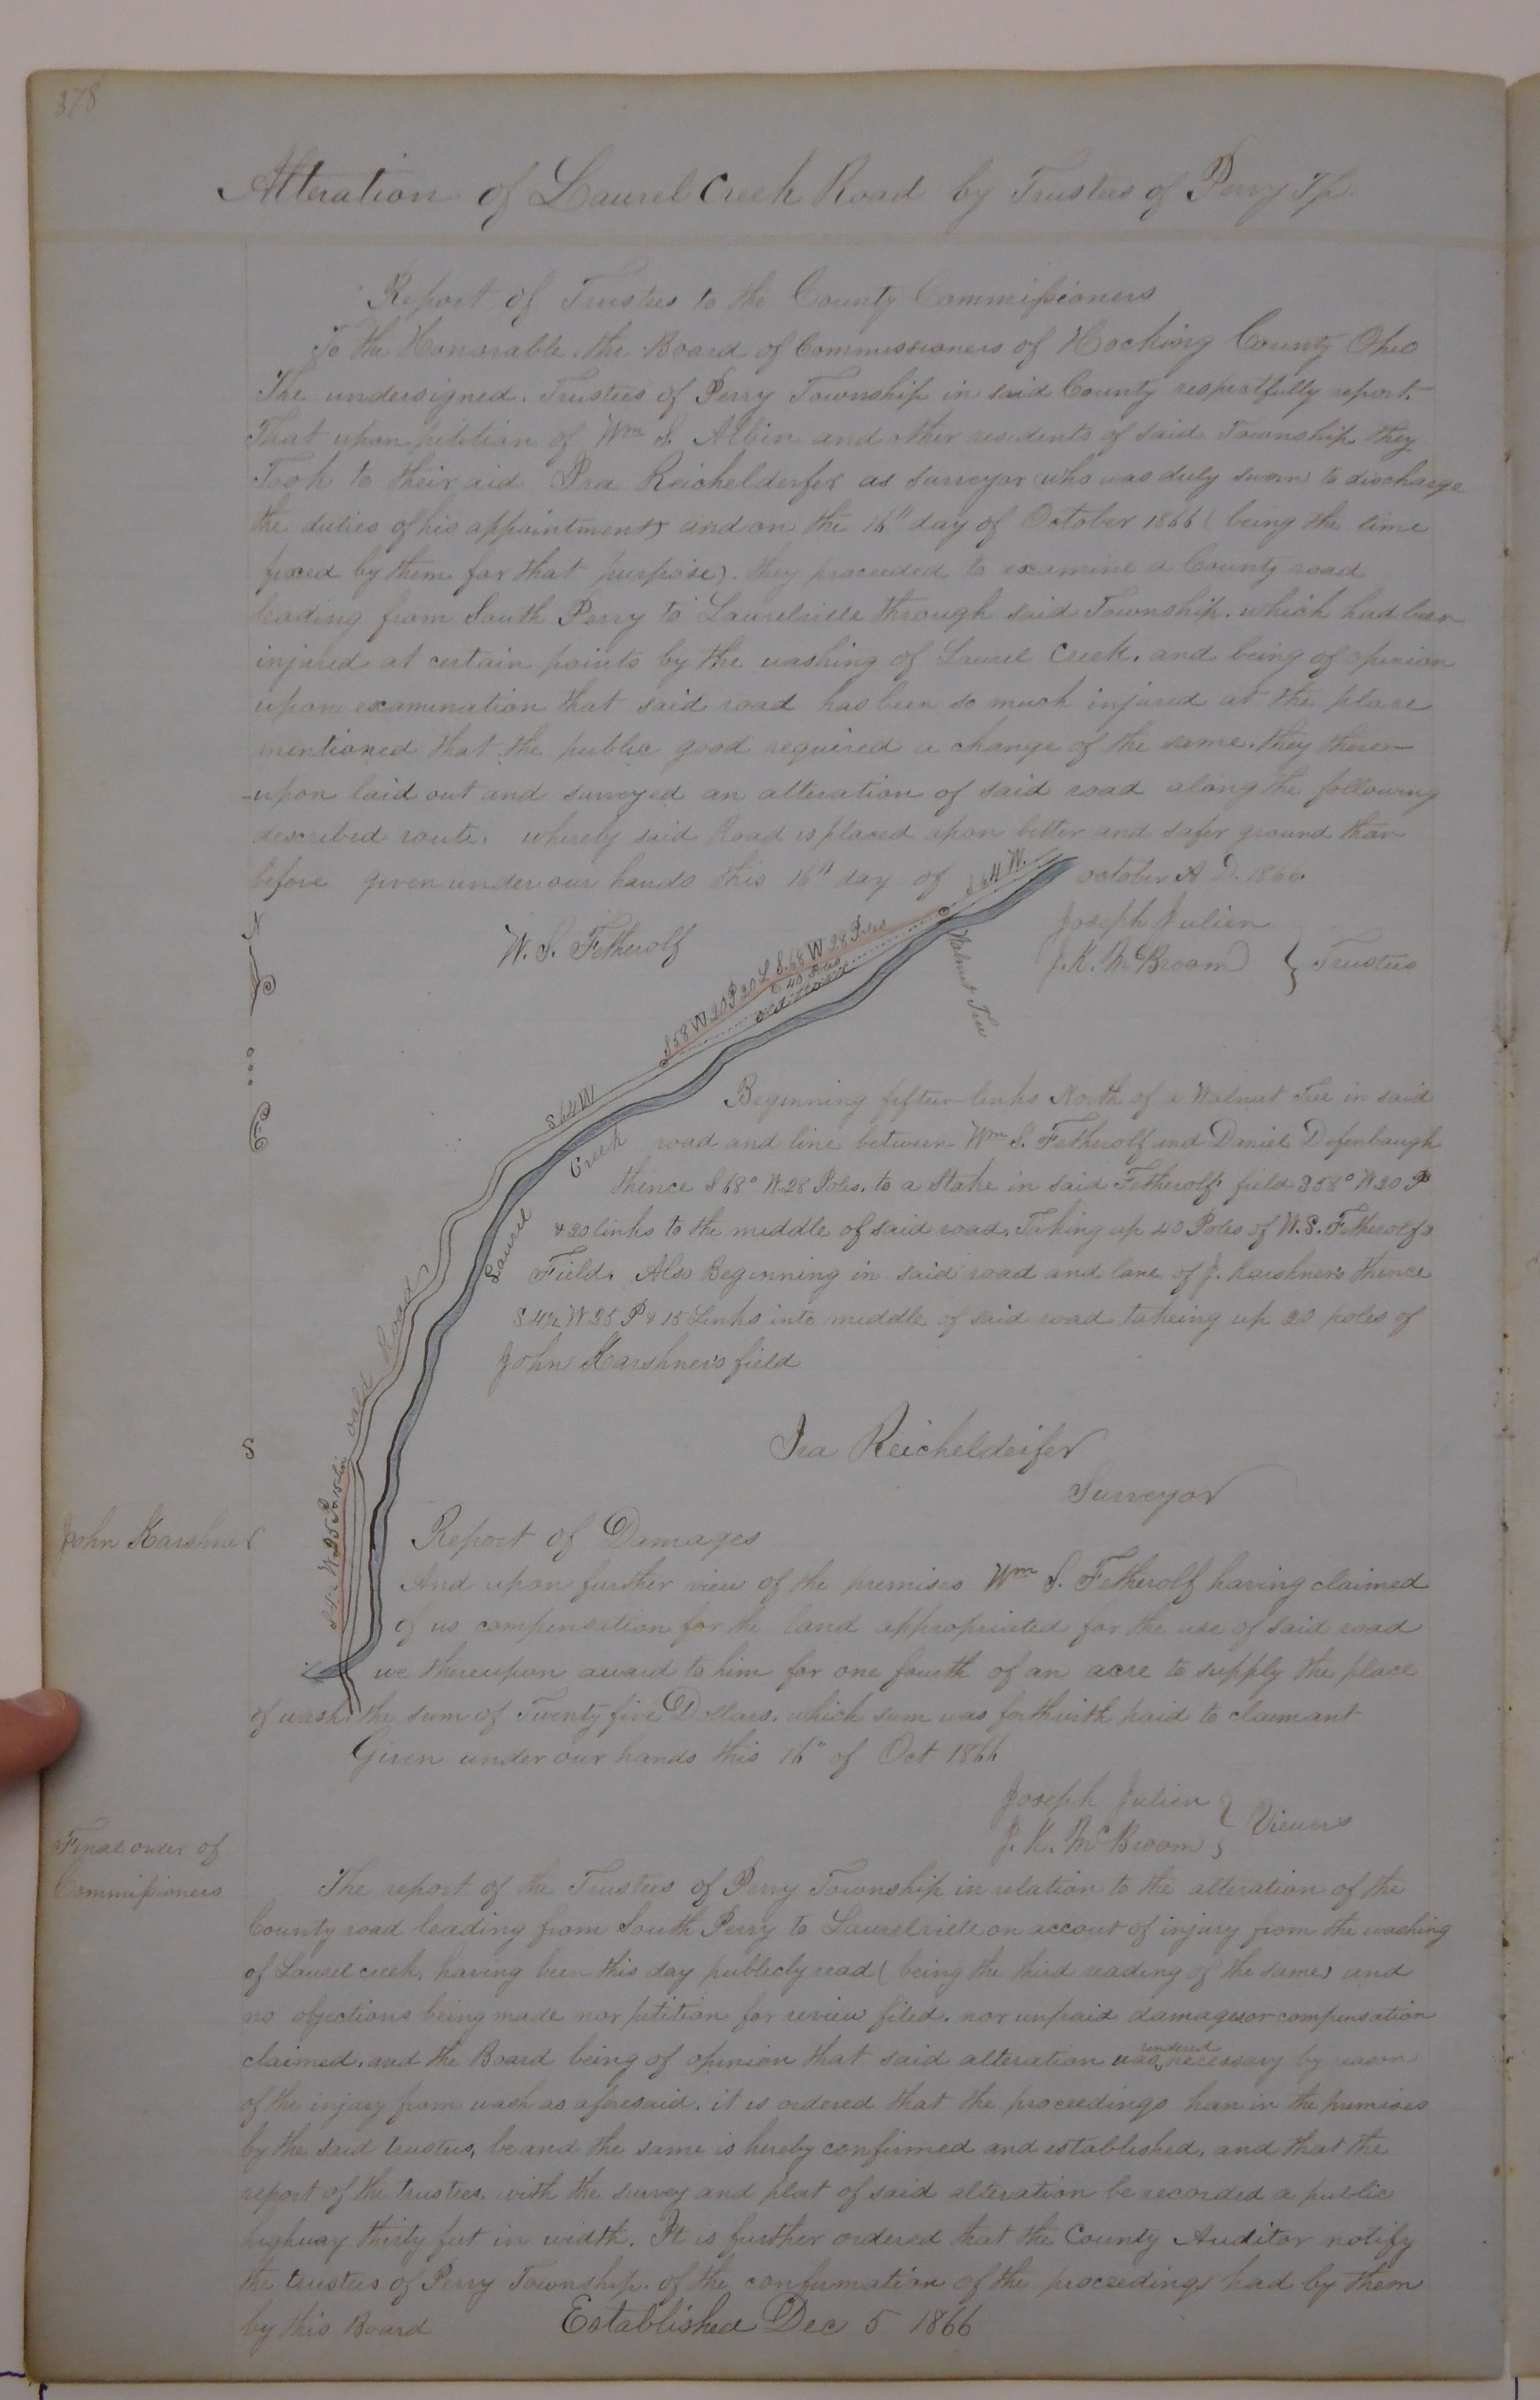 378
Alteration of Laurel Creek Road by Trustees of Perry Tp.
Report of Trustees to the County Commissioners
To the Honorable the Board of Commissioners of Hocking County Ohio
The undersigned. Trustees of Perry Township in said County respectfully report.
That upon petition of Wm S. Albin and other residents of said Township they
Took to their aid Ira Reichelderfer as surveyor (who was duly sworn to discharge
the duties of his appointment) and on the 16" day of October 1866 (being the time
fixed by them for that purpose). they proceeded to examine a County road
leading from South Perry to Laurelville through said Township. which had been
injured at certain points by the washing of Laurel Creek. and being of opinion
upon examination that said road has been so much injured at the place
mentioned that the public good required a change of the same. they there-
-upon laid out and surveyed an alteration of said road along the following
described route. whereby said Road is placed upon better and safer ground than
before given under our hands this 16" day of October A D. 1866
S 64 W.
W. S. Fetherolf
Joseph Julien
J. K. McBroom } Trustees
S 58 W 20 P 20 L S. 68 W 28 Poles
40 Poles
old Road
Walnut Tree
S 64 W
Beginning fifteen links North of a Walnut Tree in said
road and line between Wm S. Fetherolf and Daniel Defenbaugh
thence S 68° W 28 Poles. to a Stake in said Fetherolfs field S 58° W 20 P
& 20 links to the middle of said road. Taking up 40 Poles of W. S. Fetherolfs
Field. Also Beginning in said road and lane of J. Karshner's thence
S 4½ W 25 P & 15 Links into middle of said road takeing up 20 poles of
John Karshner's field
Laurel Creek
oald Road
S
S 4½ W 25 P 15 Lin
Ira Reichelderfer
Surveyor
John Karshner
Report of Damages
And upon further view of the premises Wm S. Fetherolf having claimed
of us compensation for the land appropriated for the use of said road
we thereupon award to him for one fourth of an acre to supply the place
of wash, the sum of Twenty five Dollars. which sum was forthwith paid to claimant
Given under our hands this 16" of Oct 1866
Joseph Julien
J. K. McBroom } Viewers
Final order of
Commissioners
The report of the Trustees of Perry Township in relation to the alteration of the
County road leading from South Perry to Laurelville on accout of injury from the washing
of Laurel creek, having been this day publicly read (being the third reading of the same) and
no objections being made nor petition for review filed. nor unpaid damages or compensation
claimed. and the Board being of opinion that said alteration was rendered necessary by reason
of the injury from wash as aforesaid. it is ordered that the proceedings han in the premises
by the said trustees, be and the same is hereby confirmed and established. and that the
report of the trustees. with the survey and plat of said alteration be recorded a public
highway thirty feet in width. It is further ordered that the County Auditor notify
the trustees of Perry Township. of the confirmation of the proceedings had by them
by this Board
Established Dec 5 1866